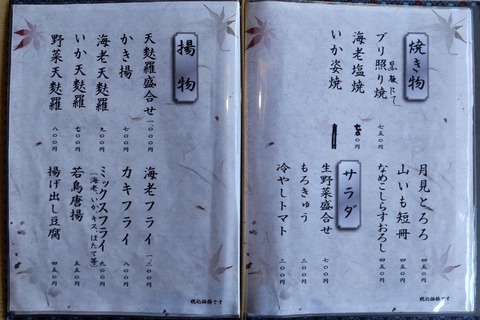 焼き物
ブリ照り焼 七五〇円
黒板にて
海老塩焼
いか姿焼
月見とろろ 四五〇円
山いも短冊 四五〇円
なめこしらすおろし 四五〇円
サラダ
生野菜盛合せ 七〇〇円
もろきゅう 三〇〇円
冷やしトマト 三〇〇円
税込価格です
揚物
天麩羅盛合せ 一〇〇〇円
かき揚 七〇〇円
海老天麩羅 九〇〇円
いか天麩羅 七〇〇円
野菜天麩羅 八〇〇円
海老フライ 一二〇〇円
カキフライ 八〇〇円
ミックスフライ 九〇〇円
(海老、いか、キス、ほたて等)
若鳥唐揚 五五〇円
揚げ出し豆腐 四五〇円
税込価格です